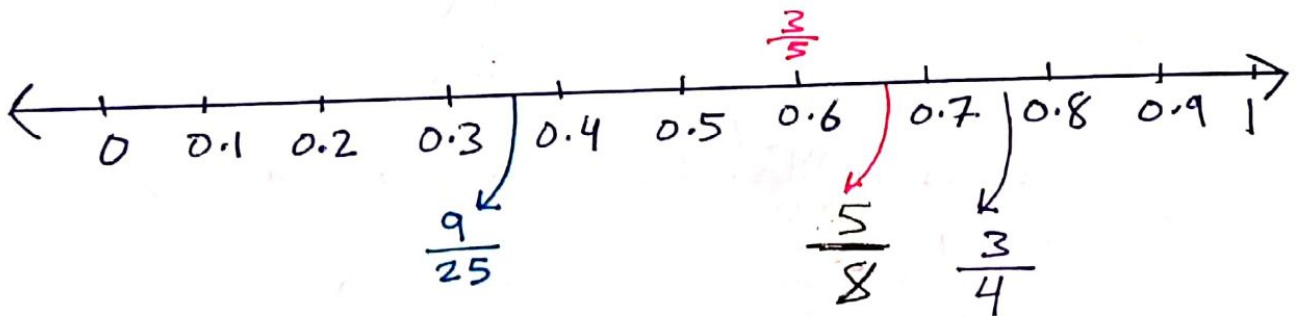 3/5
0 0.1 0.2 0.3 0.4 0.5 0.6 0.7 0.8 0.9 1
9/25 5/8 3/4